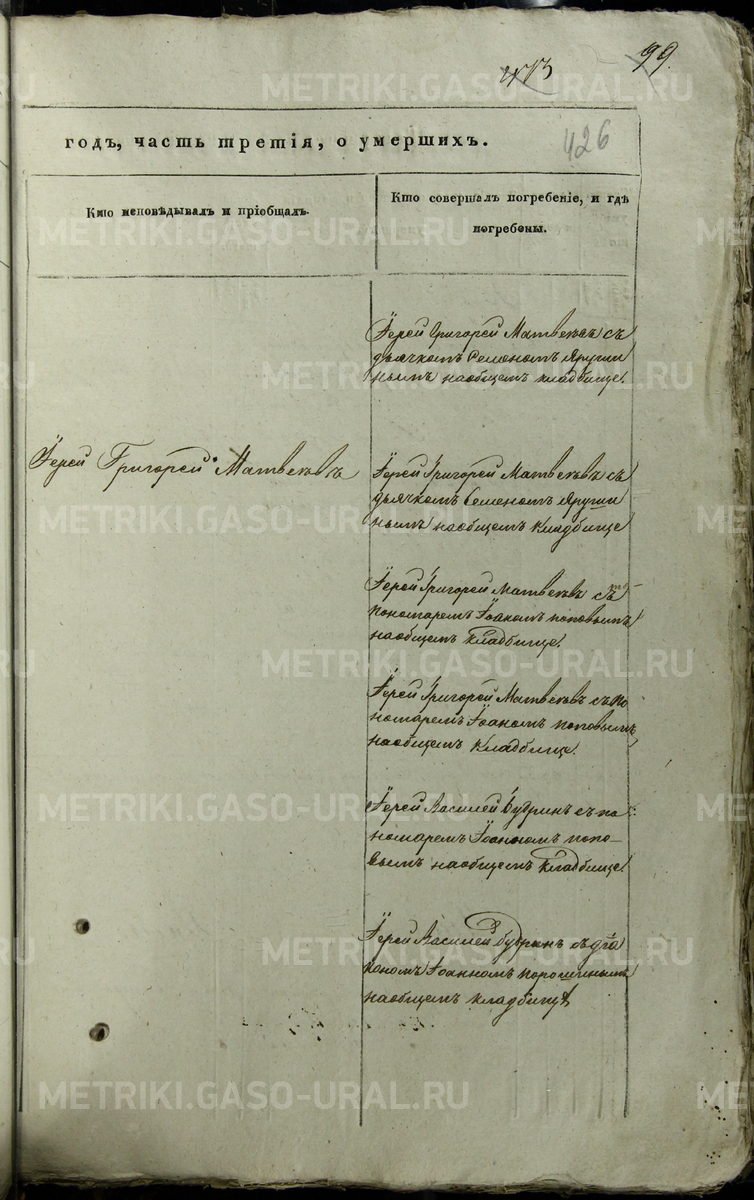 99.
426
годъ, часть третія, о умершихъ.
Кто исповѣдывалъ и пріобщалъ.
Кто совершалъ погребеніе, и гдѣ
погребены.
Іерей Григорей Матвѣевъ съ
дьячкомъ Семеномъ Яруши
нымъ наобщемъ кладбище.
Іерей Григорей Матвѣевъ
Іерей Григорей Матвѣевъ съ
дьячкомъ Семеномъ Яруши
нымъ наобщемъ кладбище
Іерей Григорей Матвѣевъ съ
пономаремъ Іоаномъ поповымъ
наобщемъ кладбище.
Іерей Григорей Матвѣевъ съ по
номаремъ Іоаномъ поповымъ
наобщемъ кладбище.
Іерей Василей Будринъ съ по
номаремъ Іоанномъ попо-
вымъ наобщемъ кладбище.
Іерей Василей Будринъ съ діа
кономъ Іоанномъ порошинымъ
наобщемъ кладбищѣ
METRIKI.GASO-URAL.RU